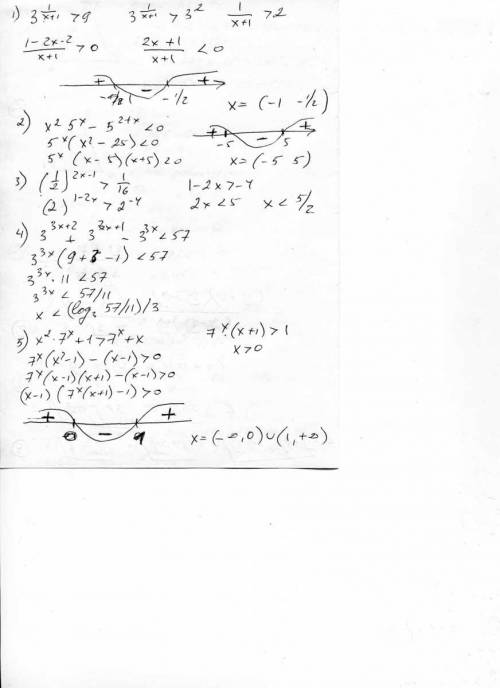 1) 3^(1/(x+1)) > 9   3^(1/(x+1)) > 3^2   1/(x+1) > 2
(1-2x-2)/(x+1) > 0   (2x+1)/(x+1) < 0
+ - +
-1/2
x = (-1 -1/2)
2) x^2 5^x - 5^(2+x) < 0
5^x (x^2 - 25) < 0
5^x (x-5)(x+5) < 0
+ - +
-5 5
x = (-5 5)
3) (1/2)^(2x-1) > 1/16   1-2x > -4
(2)^(1-2x) > 2^-4   2x < 5   x < 5/2
4) 3^(3x+2) + 3^(3x+1) - 3^(3x) < 57
3^(3x) (9+3-1) < 57
3^(3x) · 11 < 57
3^(3x) < 57/11
x < (log₃ 57/11)/3
5) x^2 · 7^x + 1 > 7^x + x   7^x · (x+1) > 1
7^x (x^2-1) - (x-1) > 0   x > 0
7^x (x-1)(x+1) - (x-1) > 0
(x-1) (7^x (x+1) - 1) > 0
+ - +
0 1
x = (-∞, 0) ∪ (1, +∞)